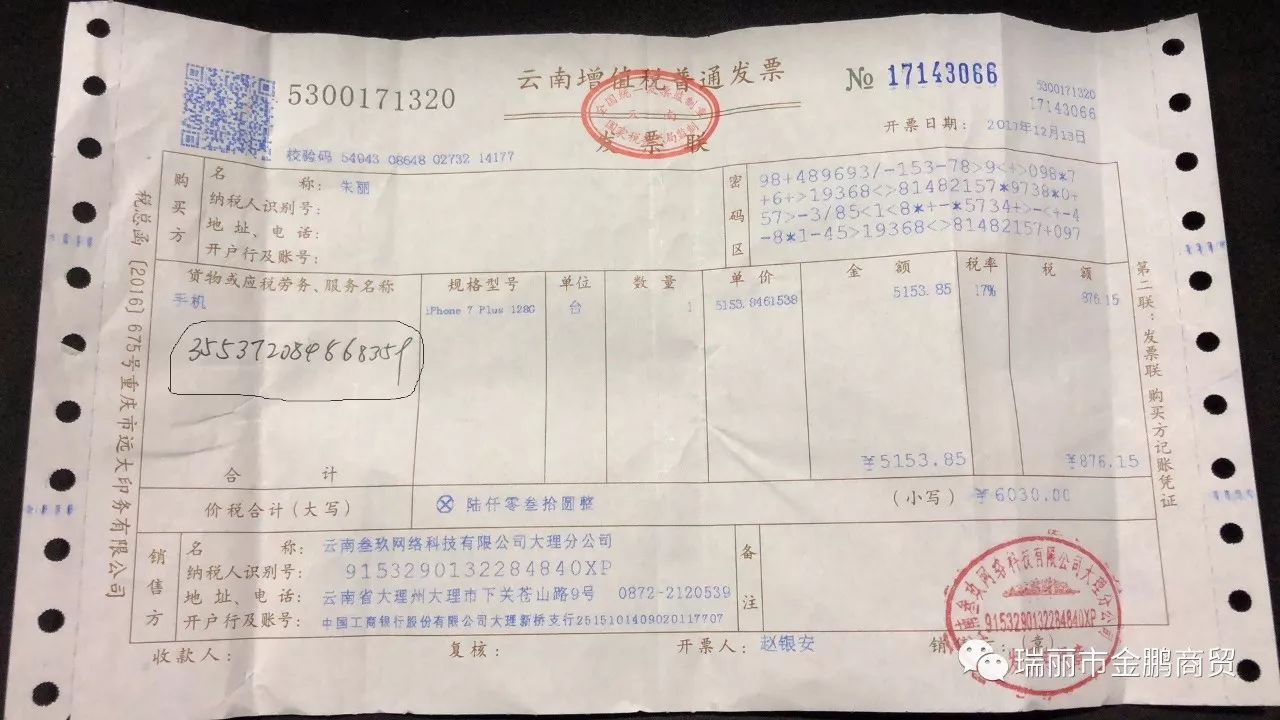 云南增值税普通发票
发票联
5300171320
№ 17143066
5300171320
17143066
校验码 54943 08648 02732 14177
开票日期: 2017年12月13日
购买方
名称: 朱丽
纳税人识别号:
地址、电话:
开户行及账号:
密码区
98+489693/-153-78>9<+>098*7
+6+>19368<>81482157*9738*0+
57>-3/85<1<8*+-*5734+>-<+-4
-8*1-45>19368<>81482157+097
货物或应税劳务、服务名称 规格型号 单位 数量 单价 金额 税率 税额
手机 iPhone 7 Plus 128G 台 1 5153.8461538 5153.85 17% 876.15
合计 ¥5153.85 ¥876.15
价税合计(大写) ⊗ 陆仟零叁拾圆整 (小写) ¥6030.00
销售方
名称: 云南叁玖网络科技有限公司大理分公司
纳税人识别号: 9153290132284840XP
地址、电话: 云南省大理州大理市下关苍山路9号 0872-2120539
开户行及账号: 中国工商银行股份有限公司大理新桥支行2515101409020117707
备注
收款人: 复核: 开票人: 赵银安 销 (章)
税总函〔2016〕675号重庆市远大印务有限公司
第二联:发票联 购买方记账凭证
9153290132284840XP
瑞丽市金鹏商贸